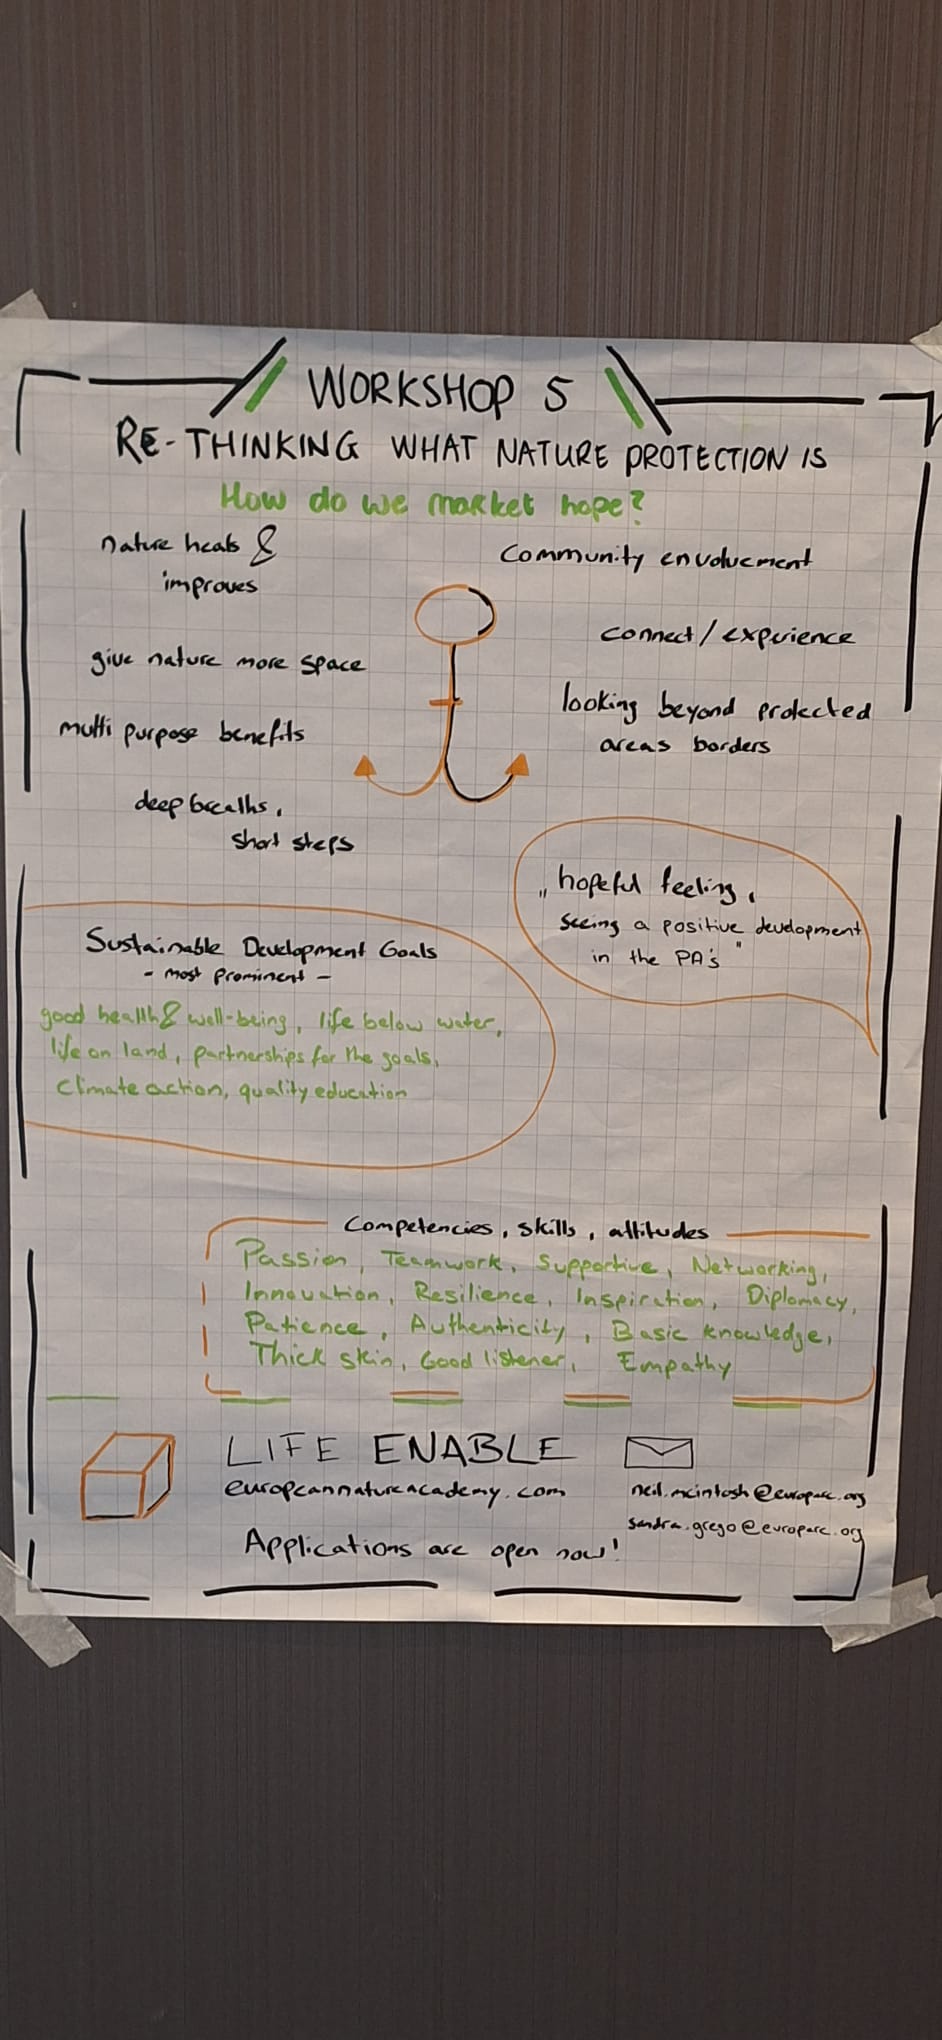 WORKSHOP 5
RE-THINKING WHAT NATURE PROTECTION IS
How do we market hope?
nature heals &
improves
give nature more space
multi purpose benefits
deep breaths,
short steps
community envolvement
connect / experience
looking beyond protected
areas borders
„hopeful feeling,
seeing a positive development
in the PA's"
Sustainable Development Goals
- most prominent -
good health & well-being, life below water,
life on land, partnerships for the goals,
climate action, quality education
Competencies, skills, attitudes
Passion, Teamwork, Supportive, Networking,
Innovation, Resilience, Inspiration, Diplomacy,
Patience, Authenticity, Basic knowledge,
Thick skin, Good listener, Empathy
LIFE ENABLE
europeannatureacademy.com
neil.mcintosh@europarc.org
sandra.grego@europarc.org
Applications are open now!